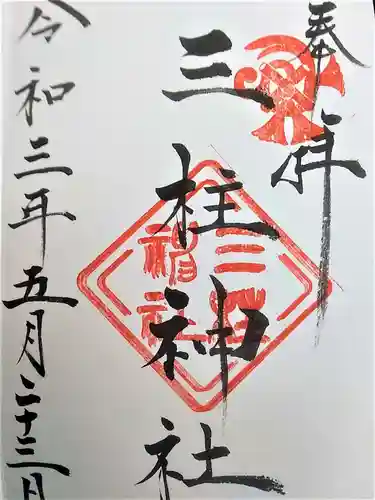 奉拝
三柱神社
令和三年五月二十三日